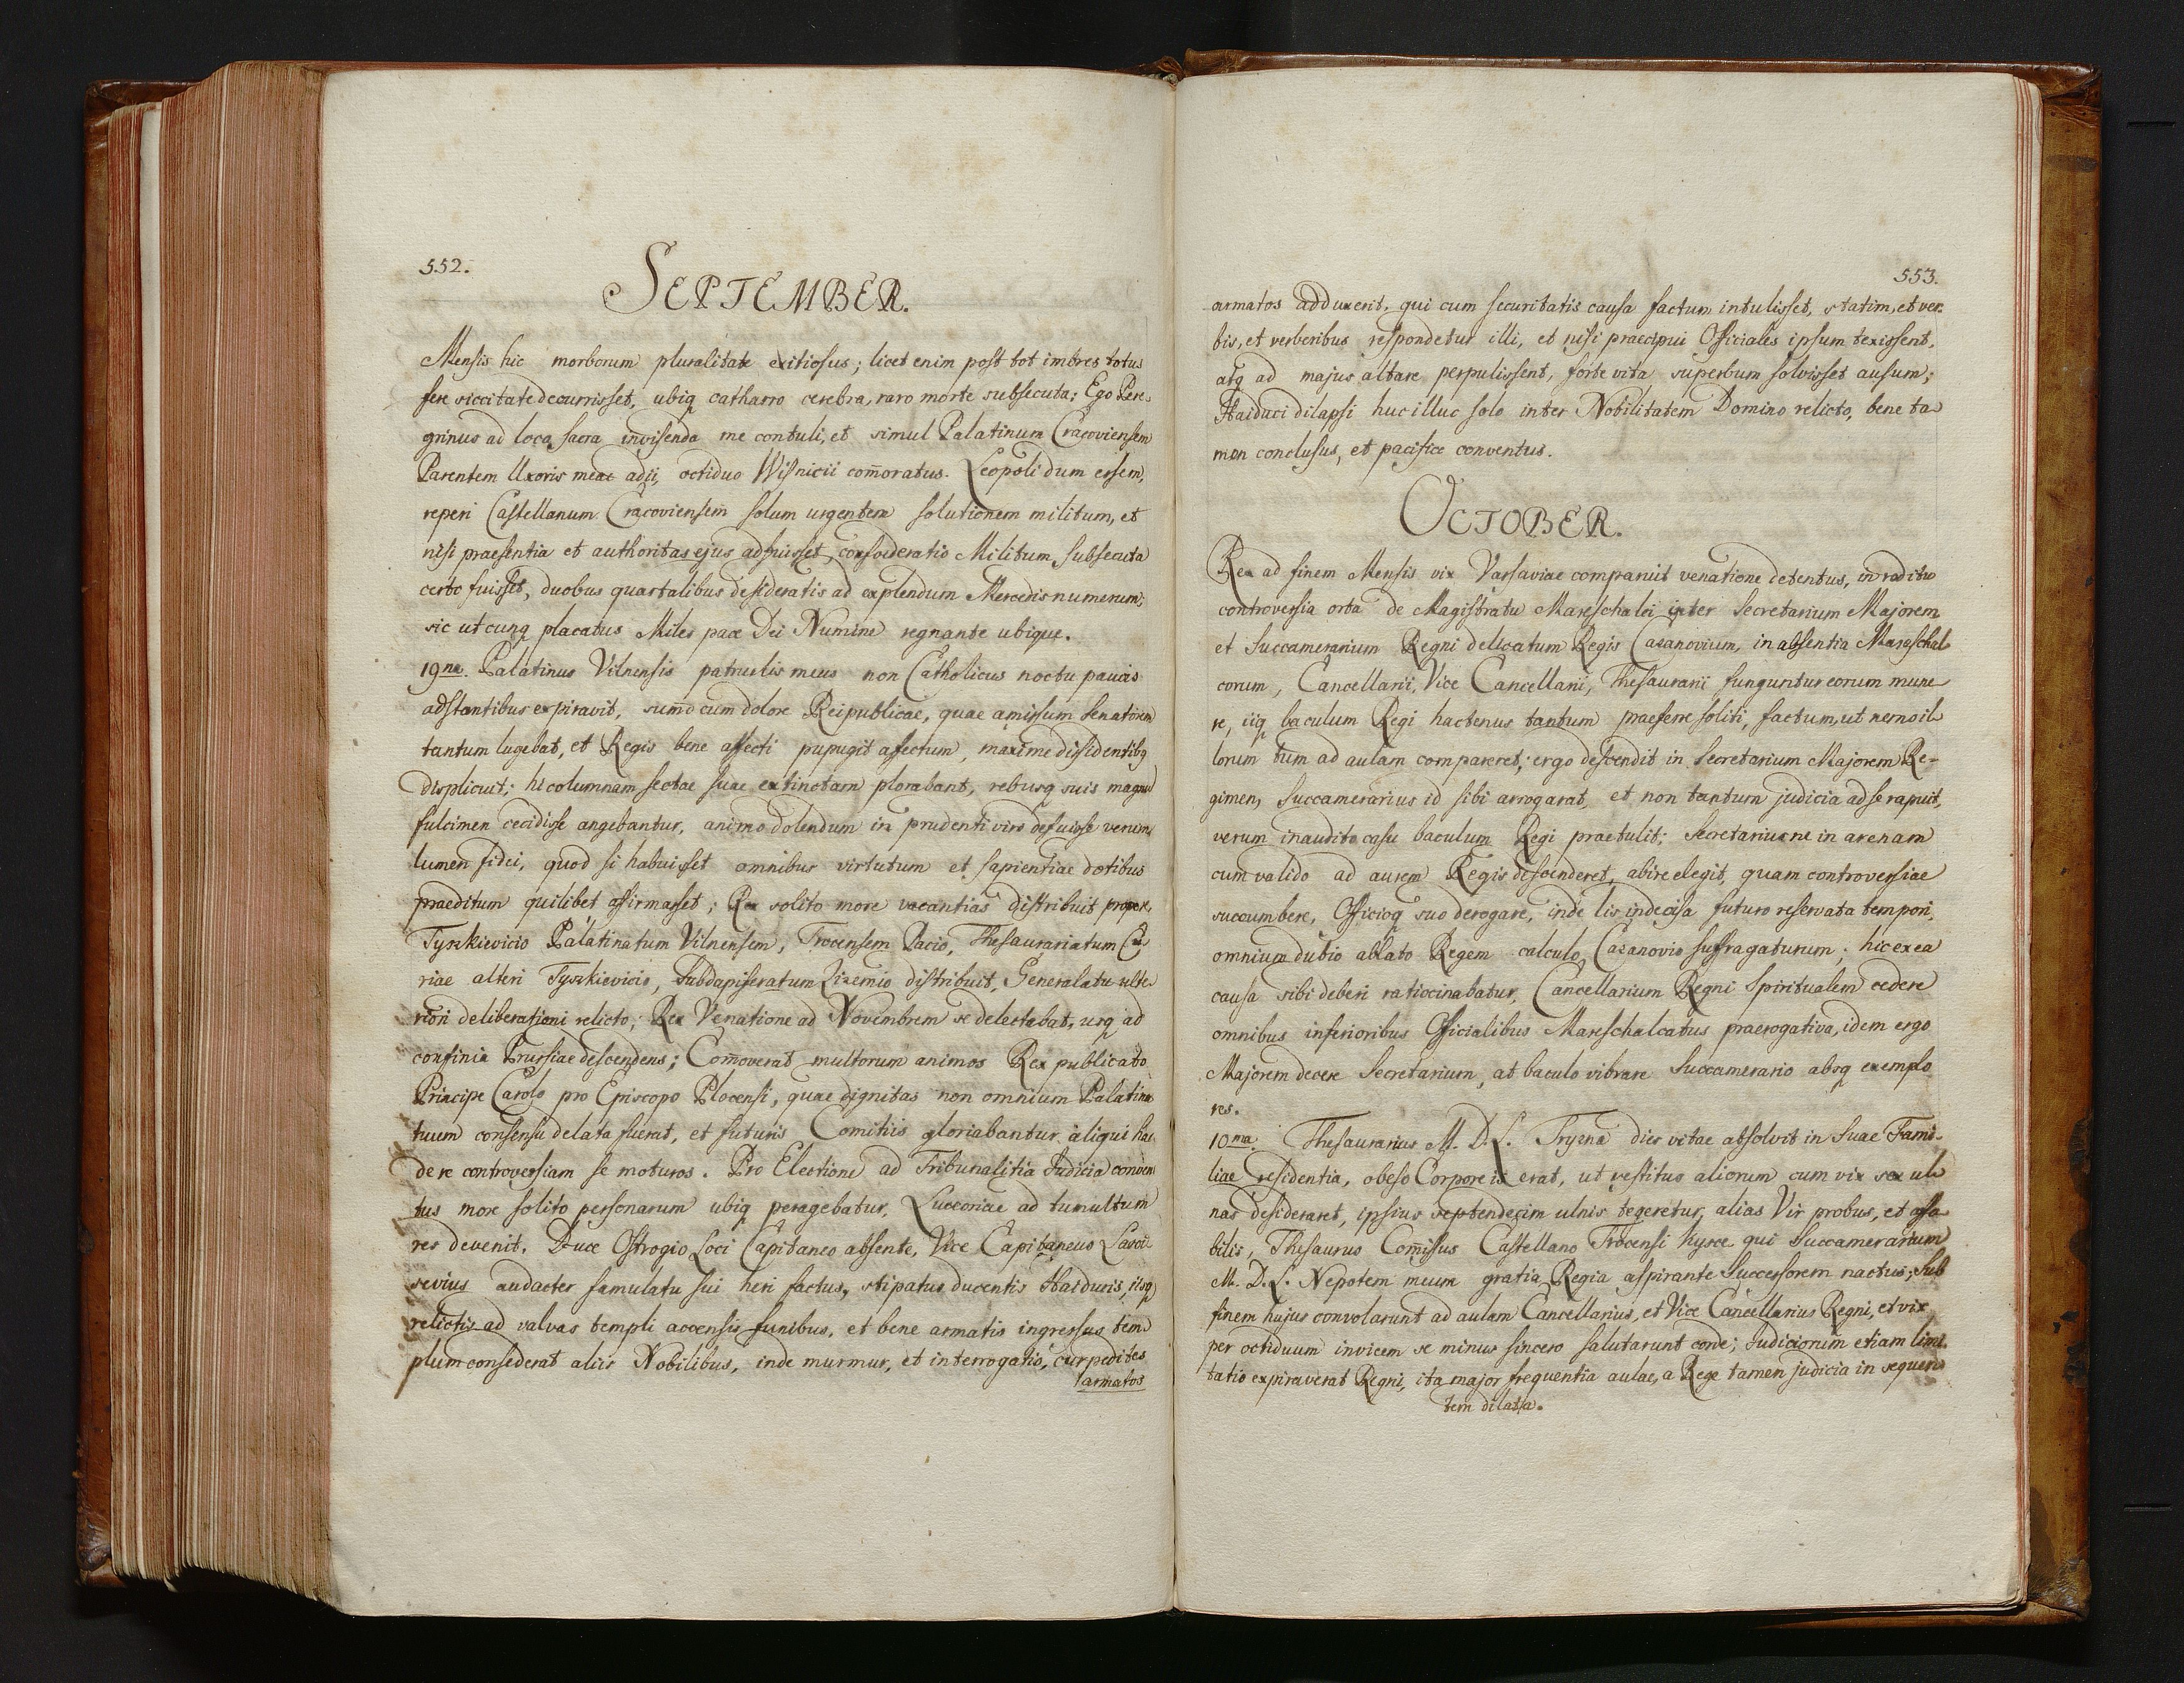 552.
SEPTEMBER.
Mensis hic morborum pluralitate exitiosus; licet enim post tot imbres totus
fere siccitate decurrisset, ubiq catharro cerebra, raro morte subsecuta; Ego Pere-
grinus ad loca sacra invisenda me contuli, et simul Palatinum Cracoviensem
Parentem Uxoris meae adii, octiduo Wisnicii com̄oratus. Leopoli dum essem,
reperi Castellanum Cracoviensem solum urgentem solutionem militum, et
nisi praesentia et authoritas ejus adfuisset, confoederatio Militum subsecuta
certo fuisset, duobus quartalibus desideratis ad explendum Mercedis numerum;
sic utcunq placatus Miles pace Dei Numine regnante ubique.
19na. Palatinus Vilnensis patruelis meus non Catholicus noctu paucis
adstantibus expiravit, sum̄o cum dolore Reipublicae, quae amissum Senatorem
tantum lugebat, et Regis bene affecti pupugit affectum, maxime dissidentibq
displicuit; hi columnam sectae suae extinctam plorabant, rebusq suis magnu
fulcimen cecidisse angebantur, animo dolendum in prudenti viro defuisse verum
lumen fidei, quod si habuisset omnibus virtutum et sapientiae dotibus
praeditum quilibet affirmasset; Rex solito more vacantias distribuit propere,
Tyszkievicio Palatinatum Vilnensem, Trocensem Pacio, Thesaurariatum Cu-
riae alteri Tyszkievicio, Subdapiferatum distribuit, Generalatu ulte-
riori deliberationi relicto; Rex Venatione ad Novembrem se delectabat, usq ad
confinia Prussiae descendens; Com̄overat multorum animos Rex publicato
Principe Carolo pro Episcopo Plocensi, quae dignitas non omnium Palatina
tuum consensu delata fuerat, et futuris Comitiis gloriabantur aliqui hac
de re controversiam se moturos. Pro Electione ad Tribunalitia Judicia conven
tus more solito personarum ubiq peragebatur, Luceoriae ad tumultum
res devenit. Duce Ostrogio Loci Capitaneo absente, Vice Capitaneus
sevius audacter famulatu sui heri factus, stipatus ducentis Haiduris, iisq
relictis ad valvas templi accensis funibus, et bene armatis ingressus tem-
plum considerat aliis Nobilibus, inde murmur, et interrogatio, cur pedites
armatos
553.
armatos adduxerit, qui cum securitatis causa factum intulisset, statim, et ver-
bis, et verberibus respondetur illi, et nisi praecipui Officiales ipsum texissent,
atq ad majus altare perpulissent, forte vita superbum solvisset ausum;
Haiduci dilapsi huc illuc solo inter Nobilitatem Domino relicto, bene ta-
men conclusus, et pacifice conventus.
OCTOBER.
Rex ad finem Mensis vix Varsaviae comparuit venatione detentus, in reditu
controversia orta de Magistratu Mareschalci inter Secretarium Majorem
et Succamerarium Regni delicatum Regis Cazanovium, in absentia Mareschal-
corum, Cancellarii, Vice Cancellarii, Thesaurarii funguntur eorum mune
re, iiq baculum Regi hactenus tantum praeferre soliti, factum, ut nemo il-
lorum tum ad aulam compareret; ergo descendit in Secretarium Majorem Re-
gimen, Succamerarius id sibi arrogarat, et non tantum judicia ad se rapuit,
verum inaudito casu baculum Regi praetulit; Secretarius ne in arenam
cum valido ad aurem Regis descenderet, abire elegit, quam controversiae
succumbere, Officioq suo derogare, inde lis indecisa futuro reservata tempori,
omnium dubio ablato Regem calculo Cazanovio suffragaturum; hic ex ea
causa sibi deberi ratiocinabatur, Cancellarium Regni Spiritualem cedere
omnibus inferioribus Officialibus Mareschalcatus praerogativa, idem ergo
Majorem decere Secretarium, at baculo vibrare Succamerario absq exemplo
res.
10ma. Thesaurarius M. D. L. Tryzna dies vitae absolvit in Suae Fami-
liae residentia, obeso Corpore is erat, ut vestitus aliorum cum vix sex ul-
nas desideraret, ipsius septendecim ulnis tegeretur, alias Vir probus, et affa-
bilis, Thesaurus Com̄issus Castellano Trocensi hysce qui Succamerarium
M. D. L. Nepotem meum gratia Regia aspirante Successorem nactus; Sub
finem hujus convolarunt ad aulam Cancellarius, et Vice Cancellarius Regni, et vix
per octiduum invicem se minus sincero salutarunt corde; Judiciorum etiam limi-
tatio expiraverat Regni, ita major frequentia aulae, a Rege tamen judicia in sequen-
tem dilata.